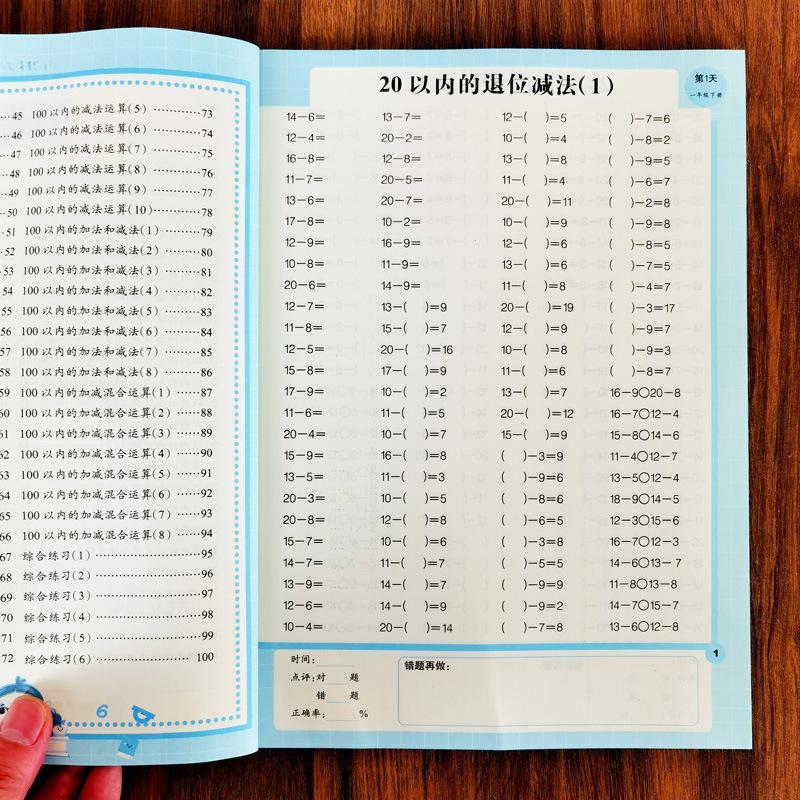 45 100以内的减法运算(5)…………73
46 100以内的减法运算(6)…………74
47 100以内的减法运算(7)…………75
48 100以内的减法运算(8)…………76
49 100以内的减法运算(9)…………77
50 100以内的减法运算(10)…………78
51 100以内的加法和减法(1)………79
52 100以内的加法和减法(2)………80
53 100以内的加法和减法(3)………81
54 100以内的加法和减法(4)………82
55 100以内的加法和减法(5)………83
56 100以内的加法和减法(6)………84
57 100以内的加法和减法(7)………85
58 100以内的加法和减法(8)………86
59 100以内的加减混合运算(1)……87
60 100以内的加减混合运算(2)……88
61 100以内的加减混合运算(3)……89
62 100以内的加减混合运算(4)……90
63 100以内的加减混合运算(5)……91
64 100以内的加减混合运算(6)……92
65 100以内的加减混合运算(7)……93
66 100以内的加减混合运算(8)……94
67 综合练习(1)……………………95
68 综合练习(2)……………………96
69 综合练习(3)……………………97
70 综合练习(4)……………………98
71 综合练习(5)……………………99
72 综合练习(6)……………………100
20以内的退位减法(1)
第1天
一年级下册
14−6= 13−7= 12−( )=5 ( )−7=6
12−4= 20−2= 10−( )=4 ( )−8=2
16−8= 12−8= 13−( )=8 ( )−9=5
11−7= 20−5= 11−( )=4 ( )−6=7
13−6= 20−7= 20−( )=11 ( )−2=8
17−8= 10−2= 10−( )=9 ( )−9=8
12−9= 16−9= 12−( )=6 ( )−8=5
10−8= 11−9= 13−( )=6 ( )−7=5
20−6= 14−9= 11−( )=8 ( )−4=7
12−7= 13−( )=9 20−( )=19 ( )−3=17
11−8= 15−( )=7 12−( )=9 ( )−9=7
12−5= 20−( )=16 10−( )=8 ( )−9=3
15−8= 17−( )=9 11−( )=6 ( )−8=7
17−9= 10−( )=2 13−( )=7 16−9○20−8
11−6= 11−( )=5 20−( )=12 16−7○12−4
20−4= 10−( )=7 15−( )=9 15−8○14−6
15−9= 16−( )=8 ( )−3=9 11−4○12−7
13−5= 11−( )=3 ( )−9=6 13−5○12−4
20−3= 10−( )=5 ( )−8=6 18−9○14−5
20−8= 12−( )=8 ( )−6=5 12−3○15−6
15−7= 10−( )=6 ( )−3=8 16−7○12−3
14−7= 11−( )=7 ( )−5=5 14−6○13−7
13−9= 14−( )=7 ( )−9=9 11−8○13−8
12−6= 14−( )=9 ( )−9=2 14−7○15−7
10−4= 20−( )=14 ( )−7=8 13−6○12−8
1
时间:
点评:对 题
错 题
正确率: %
错题再做: